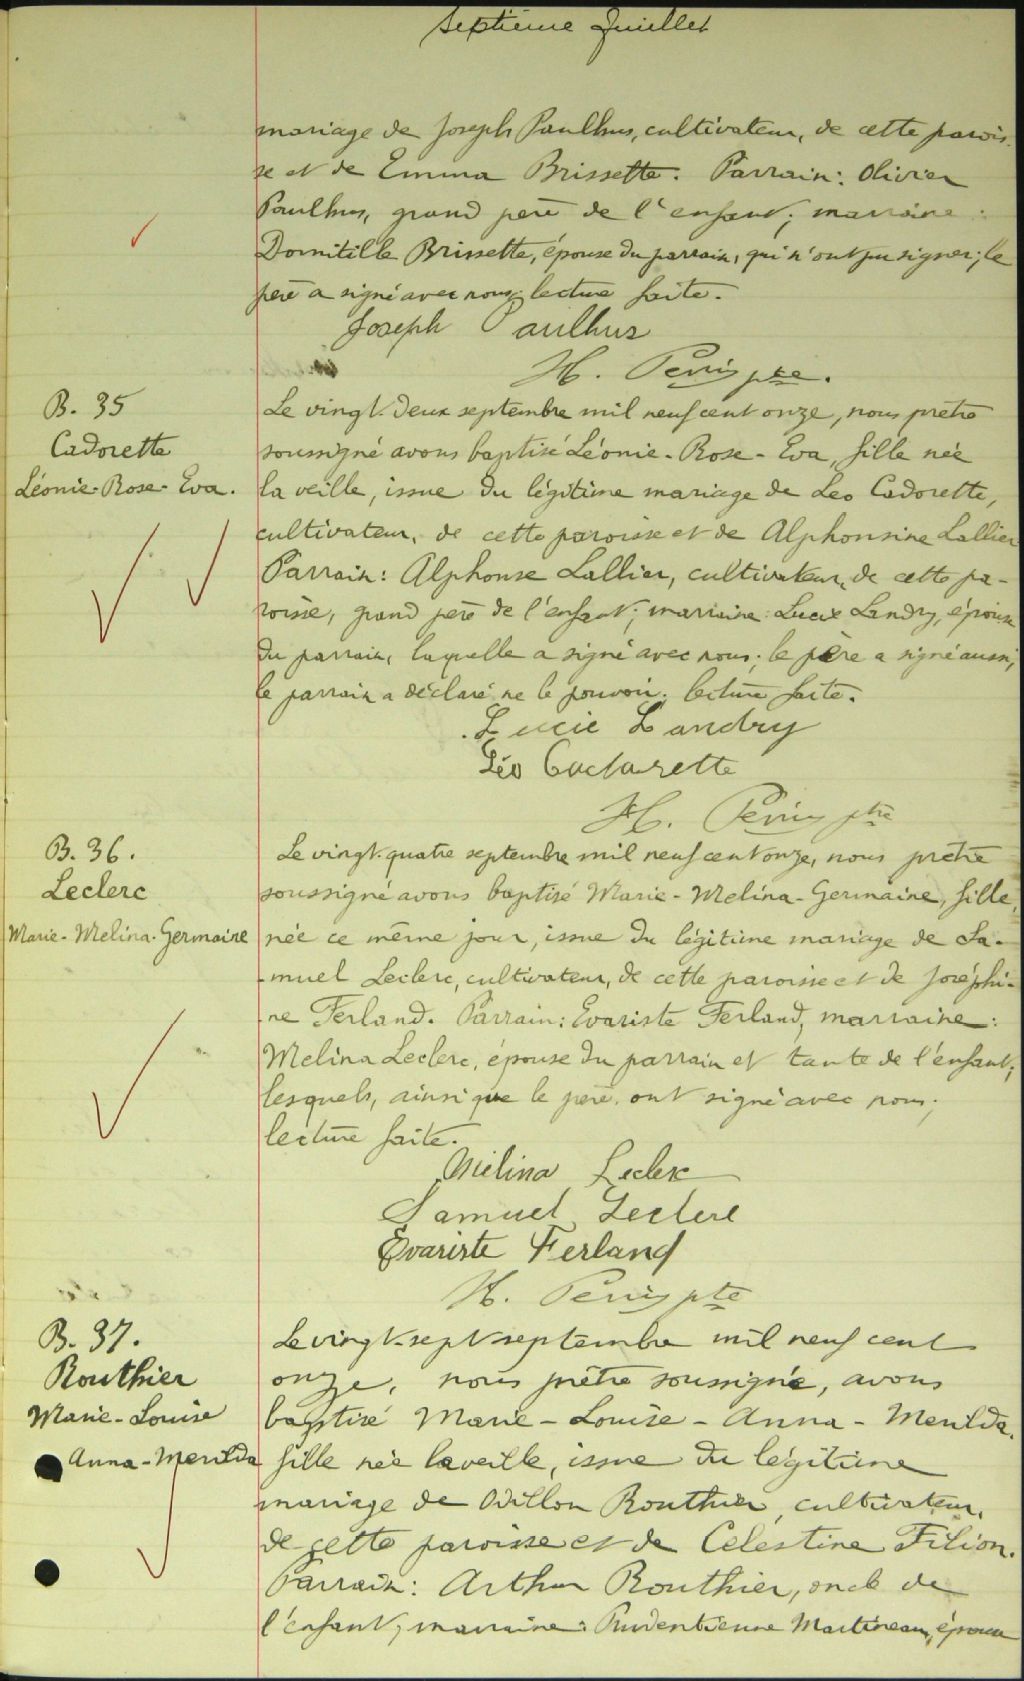 Septième Juillet
mariage de Joseph Paulhus, cultivateur, de cette parois-
se et de Emma Brissette. Parrain: Olivier
Paulhus, grand père de l'enfant; marraine:
Domitille Brissette, épouse du parrain, qui n'ont pu signer; le
père a signé avec nous; lecture faite.
Joseph Paulhus
H. ptre.
B. 35
Cadorette
Léonie-Rose-Eva.
Le vingt-deux septembre mil neuf cent onze, nous prêtre
soussigné avons baptisé Léonie-Rose-Eva, fille née
la veille, issue du légitime mariage de Leo Cadorette,
cultivateur, de cette paroisse et de Alphonsine Lallier
Parrain: Alphonse Lallier, cultivateur, de cette pa-
roisse, grand père de l'enfant; marraine: Lucie Landry, épouse
du parrain, laquelle a signé avec nous; le père a signé aussi;
le parrain a déclaré ne le pouvoir; lecture faite.
Lucie Landry
Léo Cadorette
H. ptre
B. 36.
Leclerc
Marie-Melina-Germaine
Le vingt-quatre septembre mil neuf cent onze, nous prêtre
soussigné avons baptisé Marie-Melina-Germaine, fille,
née ce même jour, issue du légitime mariage de Sa-
-muel Leclerc, cultivateur, de cette paroisse et de Joséphi-
-ne Ferland. Parrain: Evariste Ferland, marraine:
Melina Leclerc, épouse du parrain et tante de l'enfant;
lesquels, ainsi que le père, ont signé avec nous;
lecture faite.
Mélina Leclerc
Samuel Leclerc
Evariste Ferland
H. ptre
B. 37.
Routhier
Marie-Louise
Anna-Merilda
Le vingt-sept septembre mil neuf cent
onze, nous prêtre soussigné, avons
baptisé Marie-Louise-Anna-Merilda,
fille née la veille, issue du légitime
mariage de Odillon Routhier, cultivateur,
de cette paroisse et de Célestine Filion.
Parrain: Arthur Routhier, oncle de
l'enfant; marraine: Prudentienne Martineau, épouse